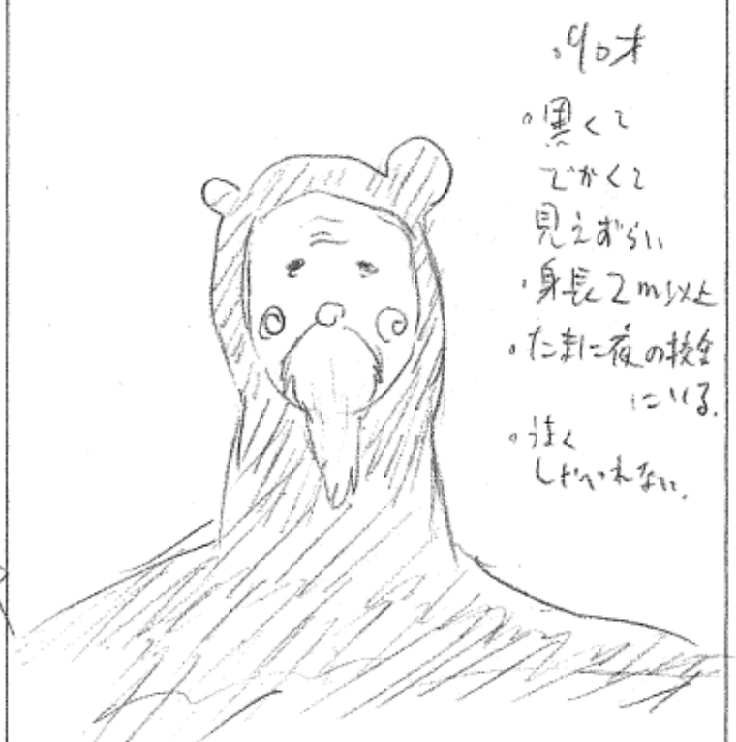 。90才
。黒くて
でかくて
見えずらい
・身長2m以上
。たまに夜の校舎
にいる.
。うまく
しゃべれない.